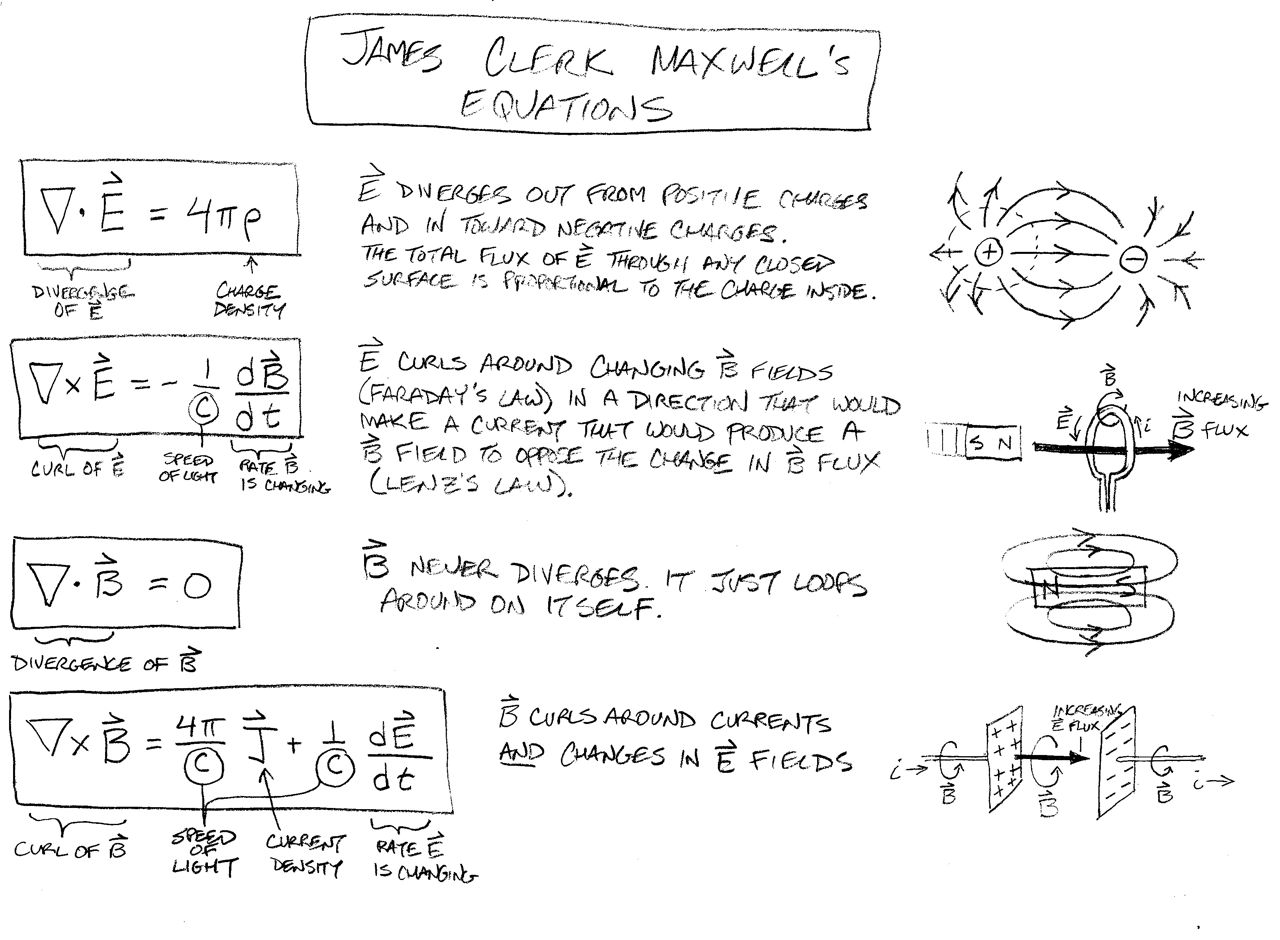 JAMES CLERK MAXWELL'S
EQUATIONS
∇ · E⃗ = 4πρ
DIVERGENCE
OF E⃗
CHARGE
DENSITY
E⃗ DIVERGES OUT FROM POSITIVE CHARGES
AND IN TOWARD NEGATIVE CHARGES.
THE TOTAL FLUX OF E⃗ THROUGH ANY CLOSED
SURFACE IS PROPORTIONAL TO THE CHARGE INSIDE.
+ −
∇ × E⃗ = − 1/C dB⃗/dt
CURL OF E⃗
SPEED
OF LIGHT
RATE B⃗
IS CHANGING
E⃗ CURLS AROUND CHANGING B⃗ FIELDS
(FARADAY'S LAW) IN A DIRECTION THAT WOULD
MAKE A CURRENT THAT WOULD PRODUCE A
B⃗ FIELD TO OPPOSE THE CHANGE IN B⃗ FLUX
(LENZ'S LAW).
S N
B⃗
E⃗
i
INCREASING
B⃗ FLUX
∇ · B⃗ = 0
DIVERGENCE OF B⃗
B⃗ NEVER DIVERGES. IT JUST LOOPS
AROUND ON ITSELF.
N S
∇ × B⃗ = 4π/C J⃗ + 1/C dE⃗/dt
CURL OF B⃗
SPEED
OF
LIGHT
CURRENT
DENSITY
RATE E⃗
IS CHANGING
B⃗ CURLS AROUND CURRENTS
AND CHANGES IN E⃗ FIELDS
INCREASING
E⃗ FLUX
i →
B⃗
+ + + + + + + +
B⃗
− − − − − − − −
B⃗
i →